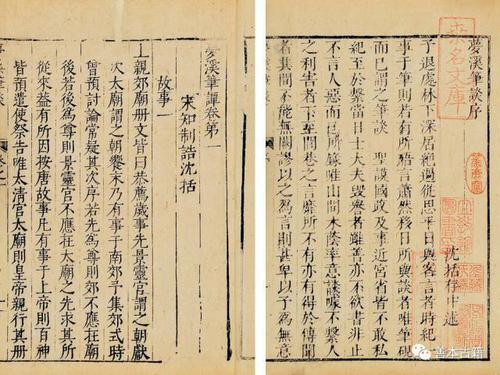 夢溪筆談序
沈括存中述
予退處林下深居絕過從思平日與客言者時紀一
事于筆則若有所晤言蕭然移日所與談者唯筆硯
而已謂之筆談 聖謨國政及事近宮省皆不敢私
紀至於繫當日士大夫毀譽者雖善亦不欲書非止
不言人惡而已所錄唯山間木蔭率意談噱不繫人
之利害者下至閭巷之言靡所不有亦有得於傳聞
者其間不能無闕謬以之為言則甚卑以予為無意
桑名文庫
夢溪筆談卷第一
宋知制誥沈括
故事一
上親郊廟冊文皆曰恭薦歲事先景靈宮謂之朝獻
次太廟謂之朝饗末乃有事于南郊予集郊式時
曾預討論常疑其次序若先為尊則郊不應在廟
後若後為尊則景靈宮不應在太廟之先求其所
從來蓋有所因按唐故事凡有事于上帝則百神
皆預遣使祭告唯太清宮太廟則皇帝親行其冊
善本古籍